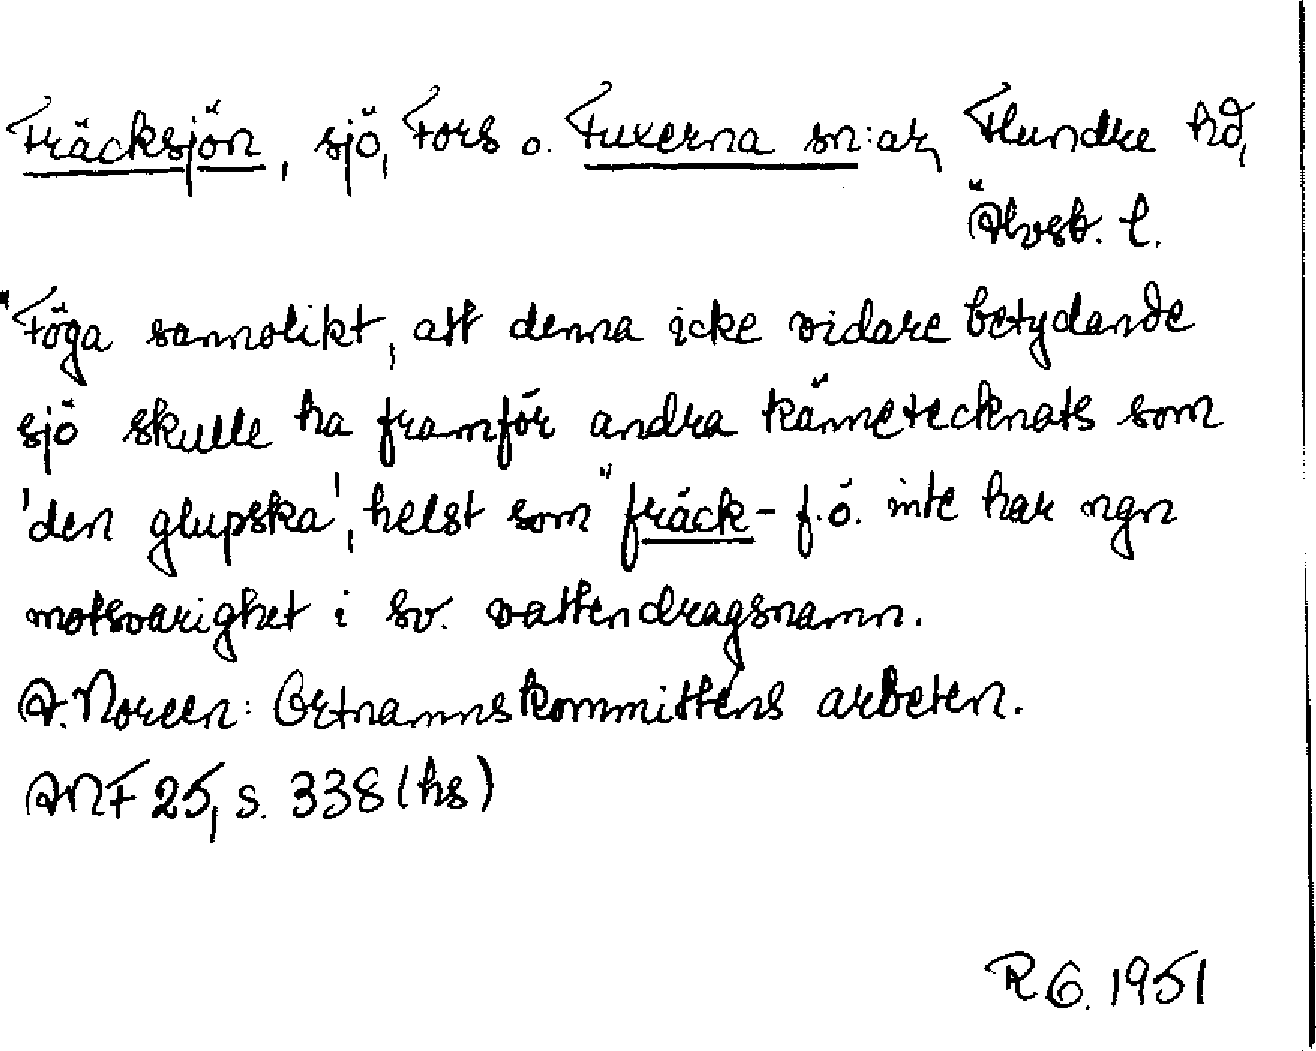 Fräcksjön, sjö, Fors o. Fuxerna sn:ar, Flundre hd,
Älvsb. l.
"Föga sannolikt, att denna icke vidare betydande
sjö skulle ha framför andra kännetecknats som
'den glupska', helst som "fräck- f.ö. inte har ngn
motsvarighet i sv. vattendragsnamn.
A. Noreen: Ortnamnskommitténs arbeten.
ANF 25, s. 338 (hs)
RG. 1951